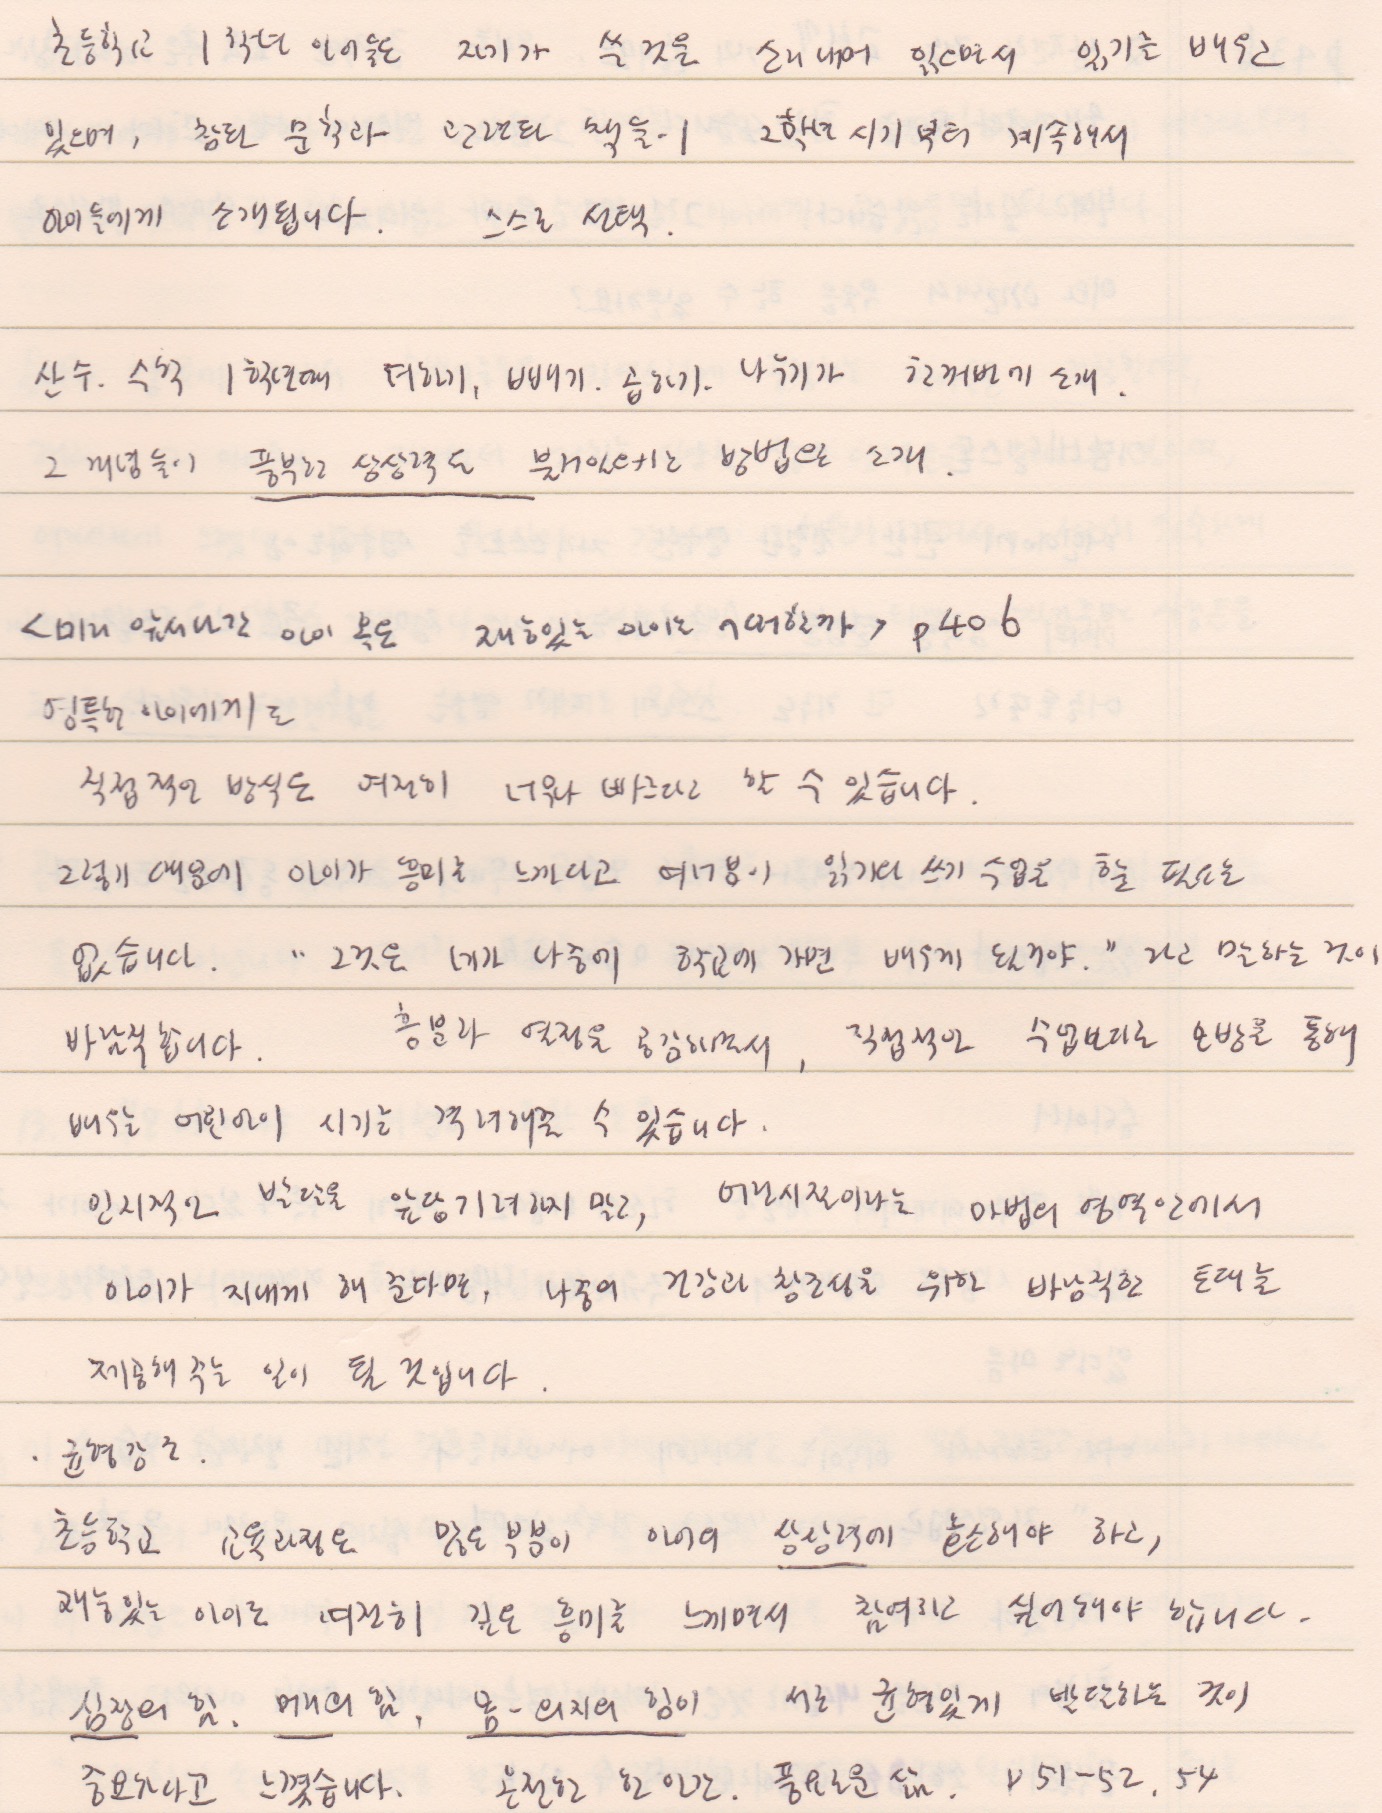 초등학교 1학년 아이들은 자기가 쓴 것을 소리내며 읽으면서 읽기를 배우고
있으며, 참된 문학과 관련된 책들이 2학년 시기부터 계속해서
아이들에게 소개됩니다. 스스로 선택.
산수. 수학 1학년때 더하기, 빼기. 곱하기. 나누기가 한꺼번에 소개.
그 개념들이 풍부한 상상력도 방법으로 소개.
<미리 앞서나간 아이 혹은 재능있는 아이는 어떠할까> p406
영특한 아이에게도
직접적인 방식은 여전히 너무나 빠르다고 할 수 있습니다.
그렇게 때문에 아이가 흥미를 느낀다고 여러분이 읽기와 쓰기 수업을 할 필요는
없습니다. "그것은 네가 나중에 학교에 가면 배우게 될거야." 라고 말하는 것이
바람직합니다. 흥분과 열정을 공감하면서, 직접적인 수업보다는 모방을 통해
배우는 어린아이 시기를 격려해줄 수 있습니다.
인지적인 발달을 앞당기려하지 말고, 어린시절이라는 마법의 영역안에서
아이가 지내게 해 준다면, 나중의 건강과 창조성을 위한 바람직한 토대를
제공해 주는 일이 될 것입니다.
. 균형감각.
초등학교 교육과정은 많은 부분이 아이의 상상력에 호소해야 하고,
재능있는 아이도 여전히 깊은 흥미를 느끼면서 참여하고 싶어해야 합니다.
심장의 힘. 머리의 힘, 몸-의지의 힘이 서로 균형있게 발달하는 것이
중요하다고 느꼈습니다. 온전한 한 인간. 풍요로운 삶. p51-52, 54